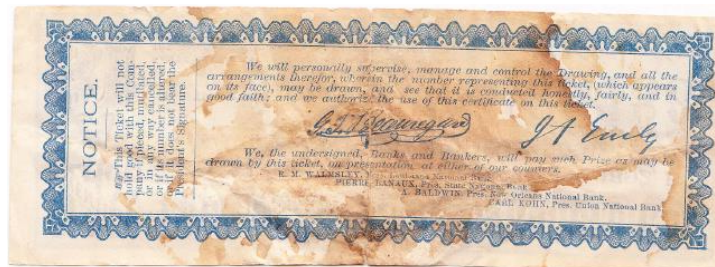 NOTICE.
This Ticket will not
hold good with this Com-
pany if defaced, mutilated,
or in any way cancelled,
or if its number is altered,
or if it does not bear the
President's Signature.
We will personally supervise, manage and control the Drawing, and all the
arrangements therefor, wherein the number representing this ticket, (which appears
on its face), may be drawn, and see that it is conducted honestly, fairly, and in
good faith; and we authorize the use of this certificate on this ticket.
G.T. Beauregard
J A Early
We, the undersigned, Banks and Bankers, will pay such Prize as may be
drawn by this ticket, on presentation at either of our counters.
R. M. WALMSLEY, Pres. Louisiana National Bank
PIERRE LANAUX, Pres. State National Bank
A. BALDWIN, Pres. New Orleans National Bank.
CARL KOHN, Pres. Union National Bank